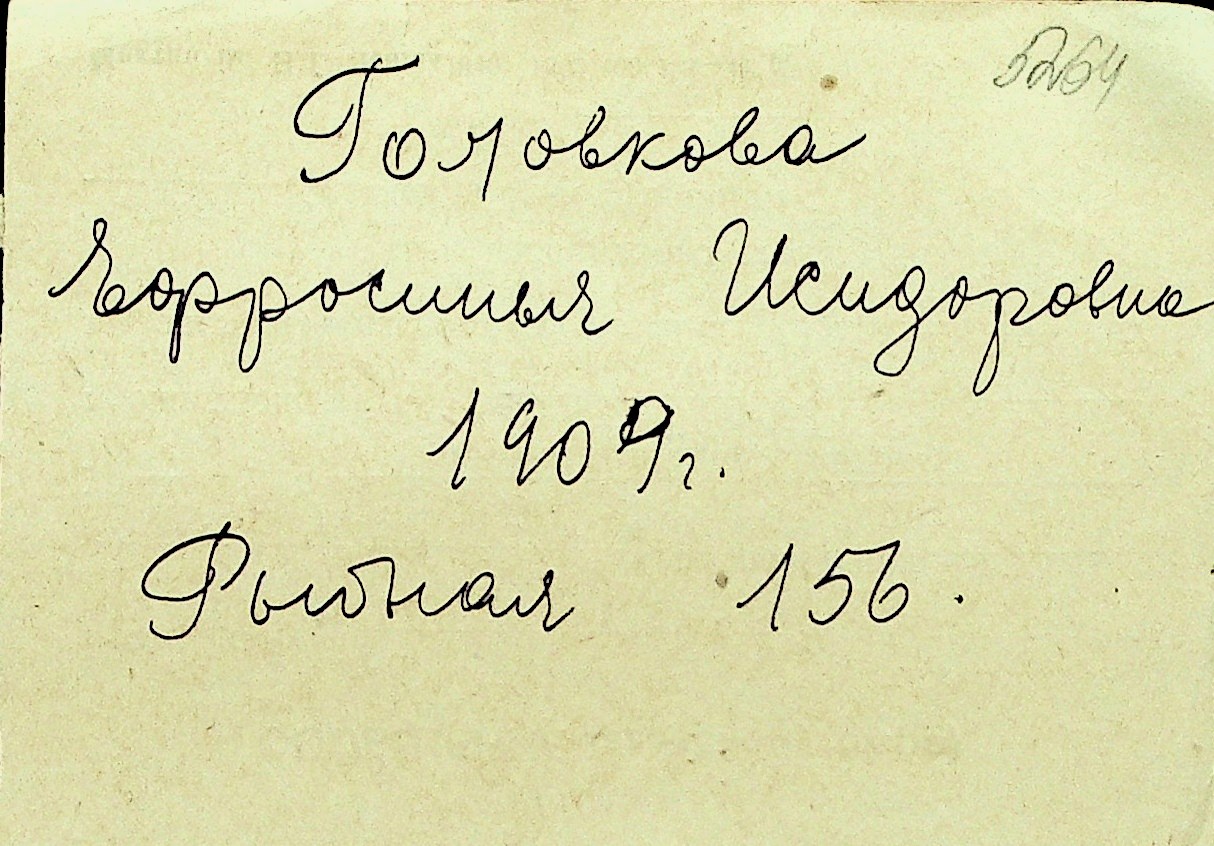 5264
Головкова
Ефросинья Исидоровна
1909 г.
Рыбная 156.